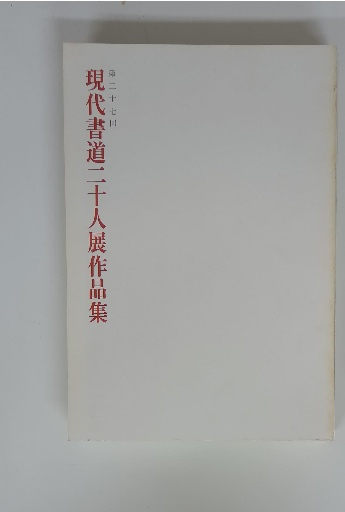 第二十七回
現代書道二十人展作品集